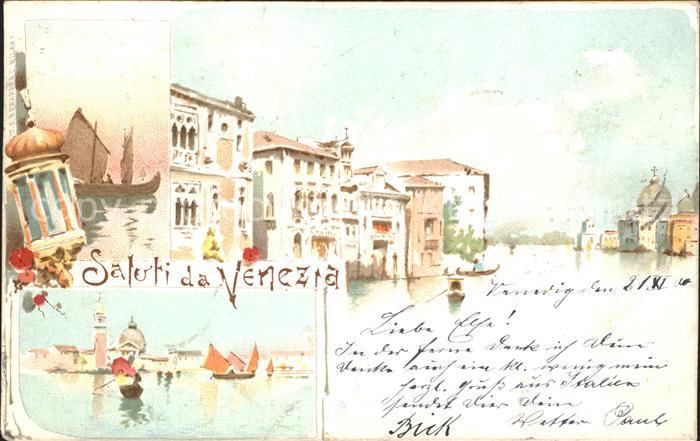 Saluti da Venezia
Venedig den 2/XI 00
Liebe Else!
In der ferne Denk ich Dein
Denke auch ein kl. wenig mein
herzl. Gruß aus Italien
sendet Dier Dein
Vetter Paul